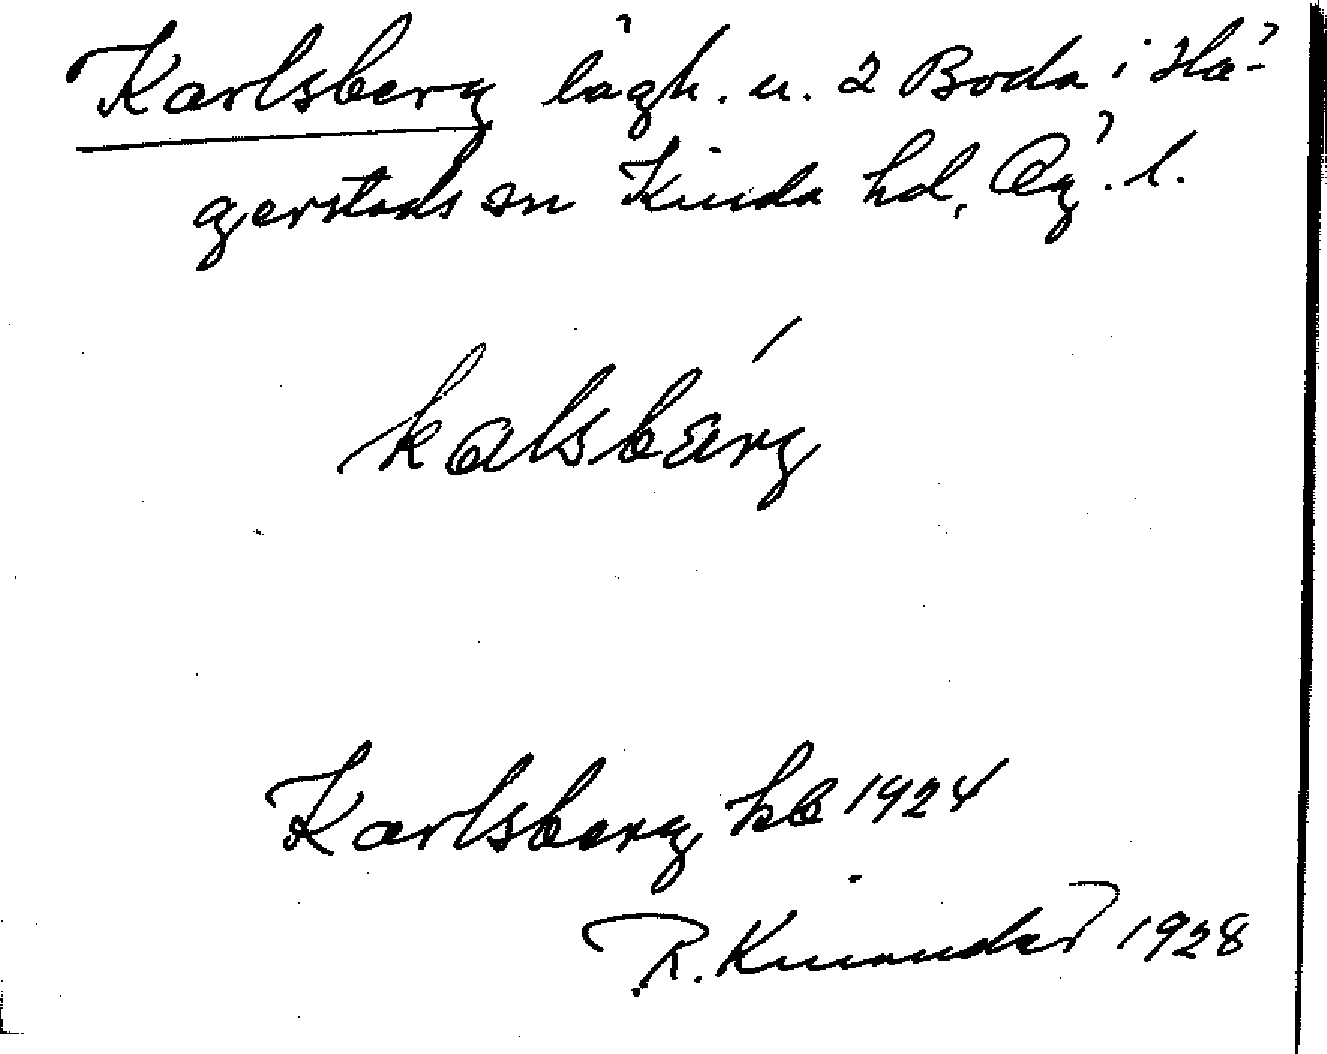 Karlsberg lägh. u. 2 Boda i Hä-
gerstads sn Kinda hd, Ög. l.
kalsbärg
Karlsberg hb 1924
R. Kinander 1928